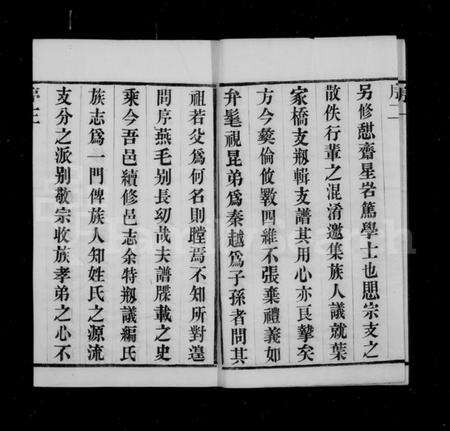 序二
另修慰齋星岩篤學士也愳宗支之
散佚行輩之混淆邀集族人議就葉
家橋支剏輯支譜其用心亦良摯矣
方今彝倫攸斁四維不張棄禮義如
弁髦視昆弟爲秦越爲子孫者問其
祖若父爲何名則瞠焉不知所對遑
問序燕毛别長幼哉夫譜牒載之史
乘今吾邑續修邑志余特剏議編氏
族志爲一門俾族人知姓氏之源流
支分之派别敬宗收族孝弟之心不
序三